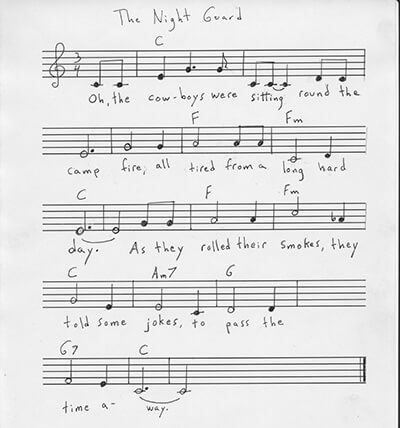 The Night Guard
C
3/4
Oh, the cow-boys were sitting round the
F Fm
camp fire, all tired from a long hard
C F Fm
day. As they rolled their smokes, they
C Am7 G
told some jokes, to pass the
G7 C
time a-way.